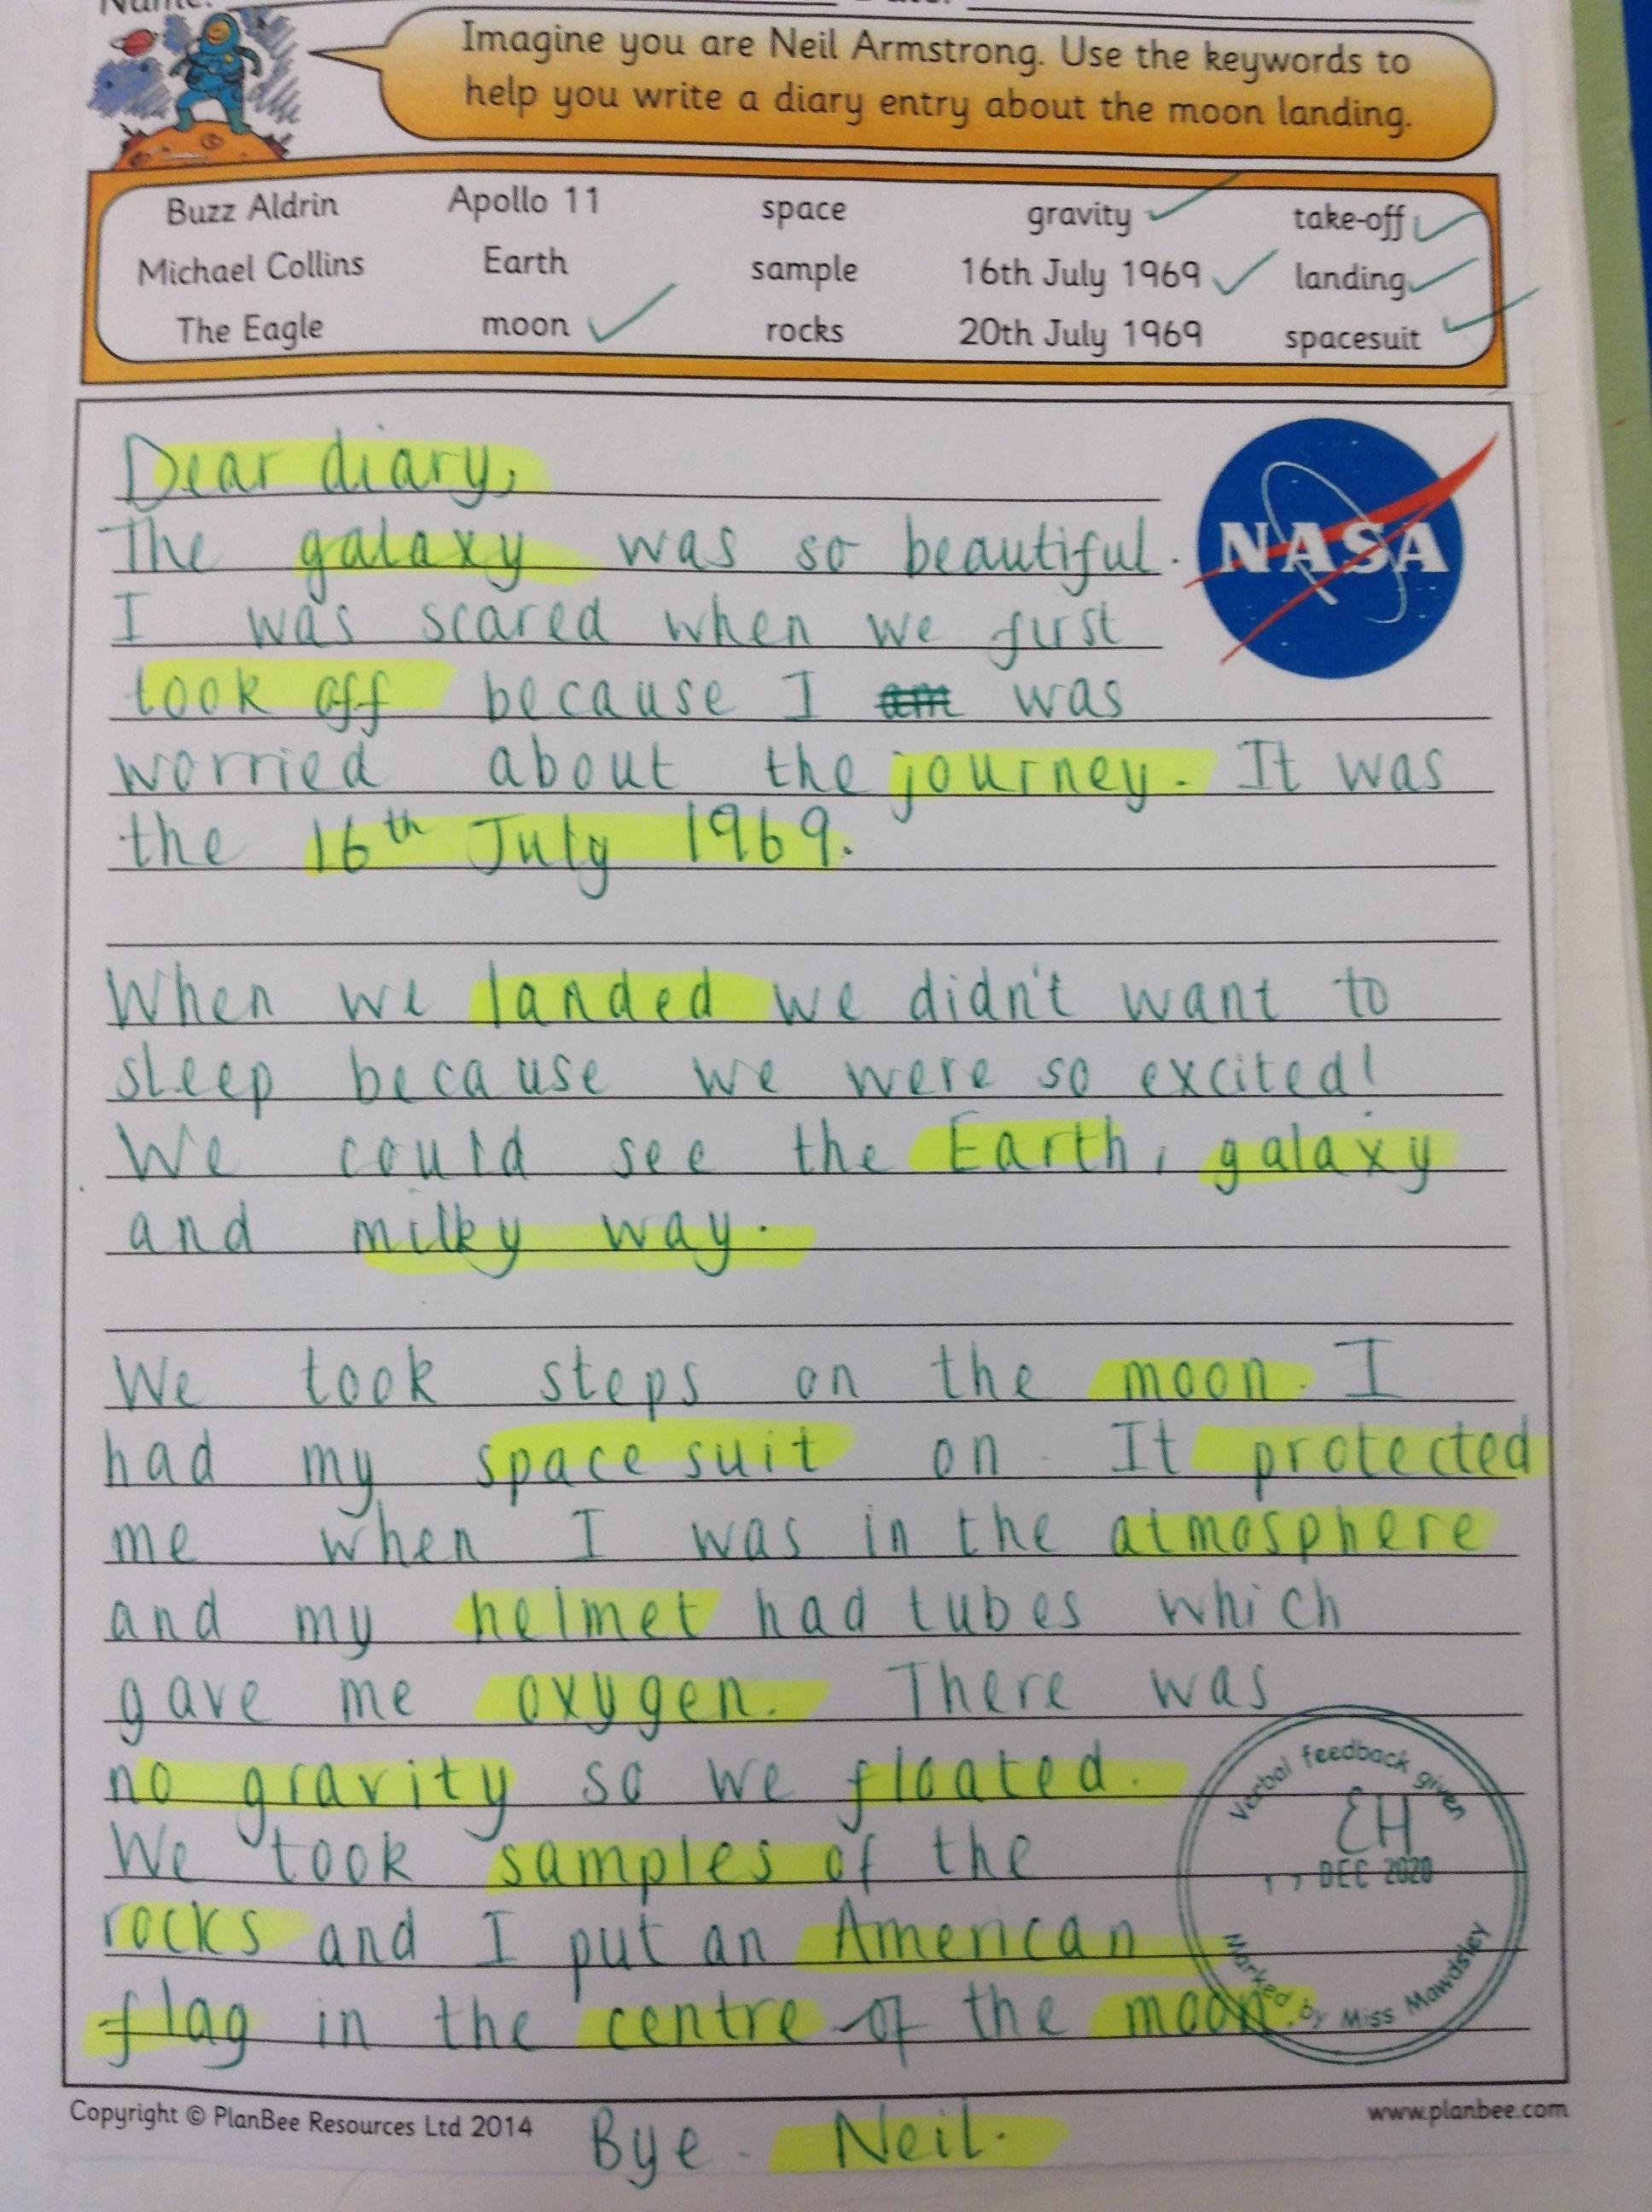 Name: Date:
Imagine you are Neil Armstrong. Use the keywords to
help you write a diary entry about the moon landing.
Buzz Aldrin Apollo 11 space gravity take-off
Michael Collins Earth sample 16th July 1969 landing
The Eagle moon rocks 20th July 1969 spacesuit
Dear diary,
The galaxy was so beautiful.
NASA
I was scared when we first
took off because I am was
worried about the journey. It was
the 16th July 1969.
When we landed we didn't want to
sleep because we were so excited!
We could see the Earth, galaxy
and milky way.
We took steps on the moon. I
had my space suit on. It protected
me when I was in the atmosphere
and my helmet had tubes which
gave me oxygen. There was
no gravity so we floated.
We took samples of the
rocks and I put an American
flag in the centre of the moon.
Verbal feedback given
EH
DEC 2020
Marked by Miss Mawdsley
Copyright © PlanBee Resources Ltd 2014
www.planbee.com
Bye. Neil.